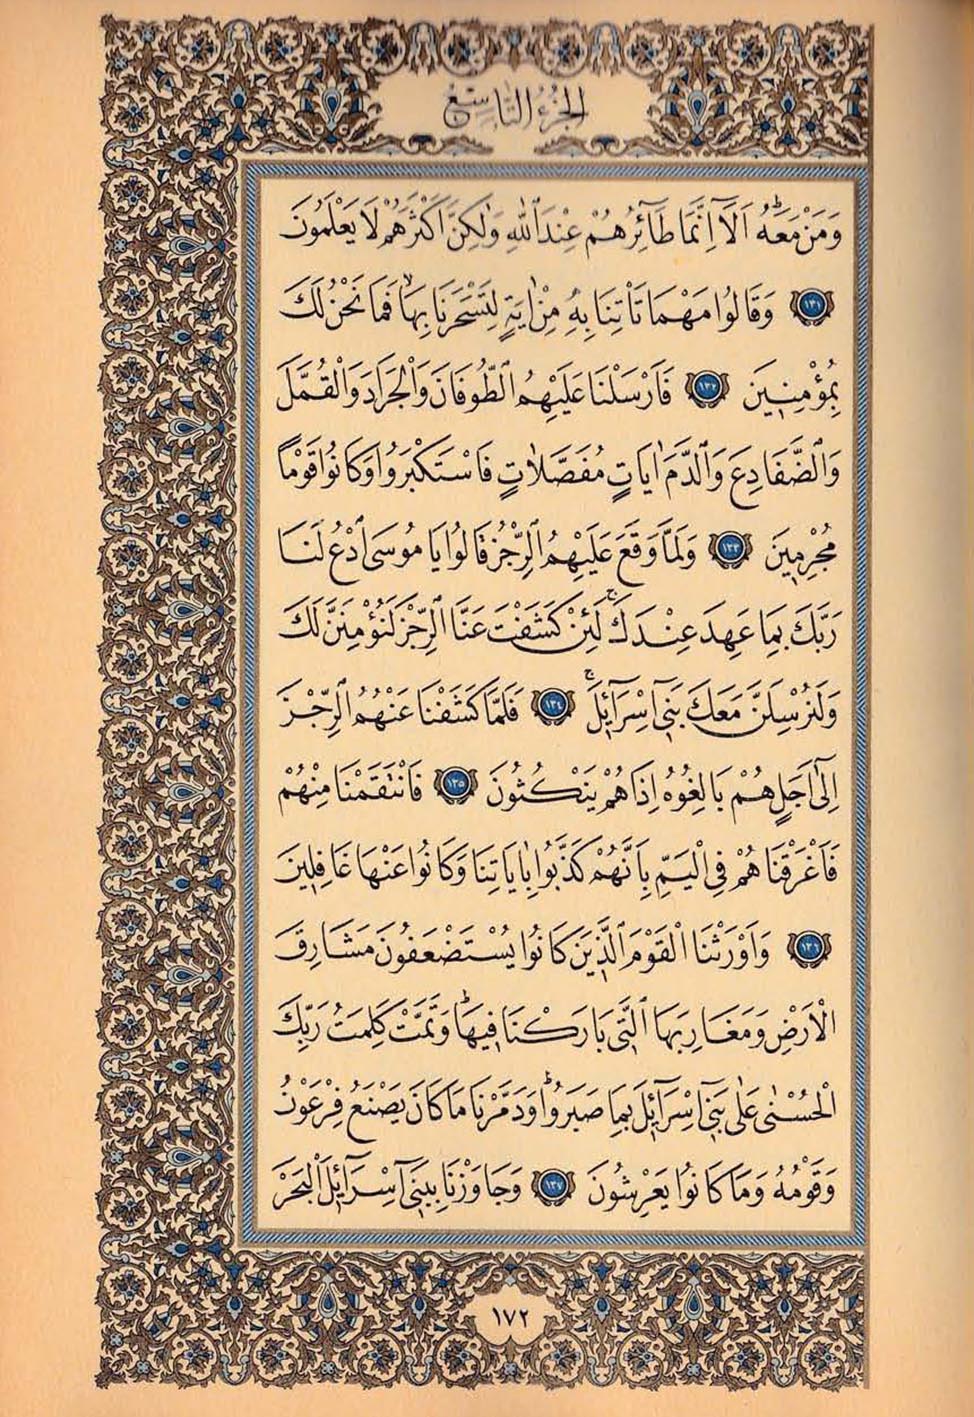 الجزء التاسع
وَمَنْ مَعَهُ اَلَٓا اِنَّمَا طَٓائِرُهُمْ عِنْدَ ٱللّٰهِ وَلٰكِنَّ اَكْثَرَهُمْ لَا يَعْلَمُونَ
﴿١٣١﴾ وَقَالُوا مَهْمَا تَأْتِنَا بِهِ مِنْ اٰيَةٍ لِتَسْحَرَنَا بِهَا فَمَا نَحْنُ لَكَ
بِمُؤْمِنِينَ ﴿١٣٢﴾ فَاَرْسَلْنَا عَلَيْهِمُ ٱلطُّوفَانَ وَٱلْجَرَادَ وَالْقُمَّلَ
وَٱلضَّفَادِعَ وَٱلدَّمَ اٰيَاتٍ مُفَصَّلَاتٍ فَاسْتَكْبَرُوا وَكَانُوا قَوْمًا
مُجْرِمِينَ ﴿١٣٣﴾ وَلَمَّا وَقَعَ عَلَيْهِمُ ٱلرِّجْزُ قَالُوا يَا مُوسَى ٱدْعُ لَنَا
رَبَّكَ بِمَا عَهِدَ عِنْدَكَ لَئِنْ كَشَفْتَ عَنَّا ٱلرِّجْزَ لَنُؤْمِنَنَّ لَكَ
وَلَنُرْسِلَنَّ مَعَكَ بَنِٓي اِسْرَٓائِلَ ﴿١٣٤﴾ فَلَمَّا كَشَفْنَا عَنْهُمُ ٱلرِّجْزَ
اِلٰٓى اَجَلٍ هُمْ بَالِغُوهُ اِذَا هُمْ يَنْكُثُونَ ﴿١٣٥﴾ فَانْتَقَمْنَا مِنْهُمْ
فَاَغْرَقْنَاهُمْ فِي الْيَمِّ بِاَنَّهُمْ كَذَّبُوا بِاٰيَاتِنَا وَكَانُوا عَنْهَا غَافِلِينَ
﴿١٣٦﴾ وَاَوْرَثْنَا الْقَوْمَ ٱلَّذِينَ كَانُوا يُسْتَضْعَفُونَ مَشَارِقَ
الْاَرْضِ وَمَغَارِبَهَا ٱلَّتِي بَارَكْنَا فِيهَا وَتَمَّتْ كَلِمَتُ رَبِّكَ
الْحُسْنٰى عَلٰى بَنِٓي اِسْرَٓائِلَ بِمَا صَبَرُوا وَدَمَّرْنَا مَا كَانَ يَصْنَعُ فِرْعَوْنُ
وَقَوْمُهُ وَمَا كَانُوا يَعْرِشُونَ ﴿١٣٧﴾ وَجَاوَزْنَا بِبَنِٓي اِسْرَٓائِلَ ٱلْبَحْرَ
١٧٢